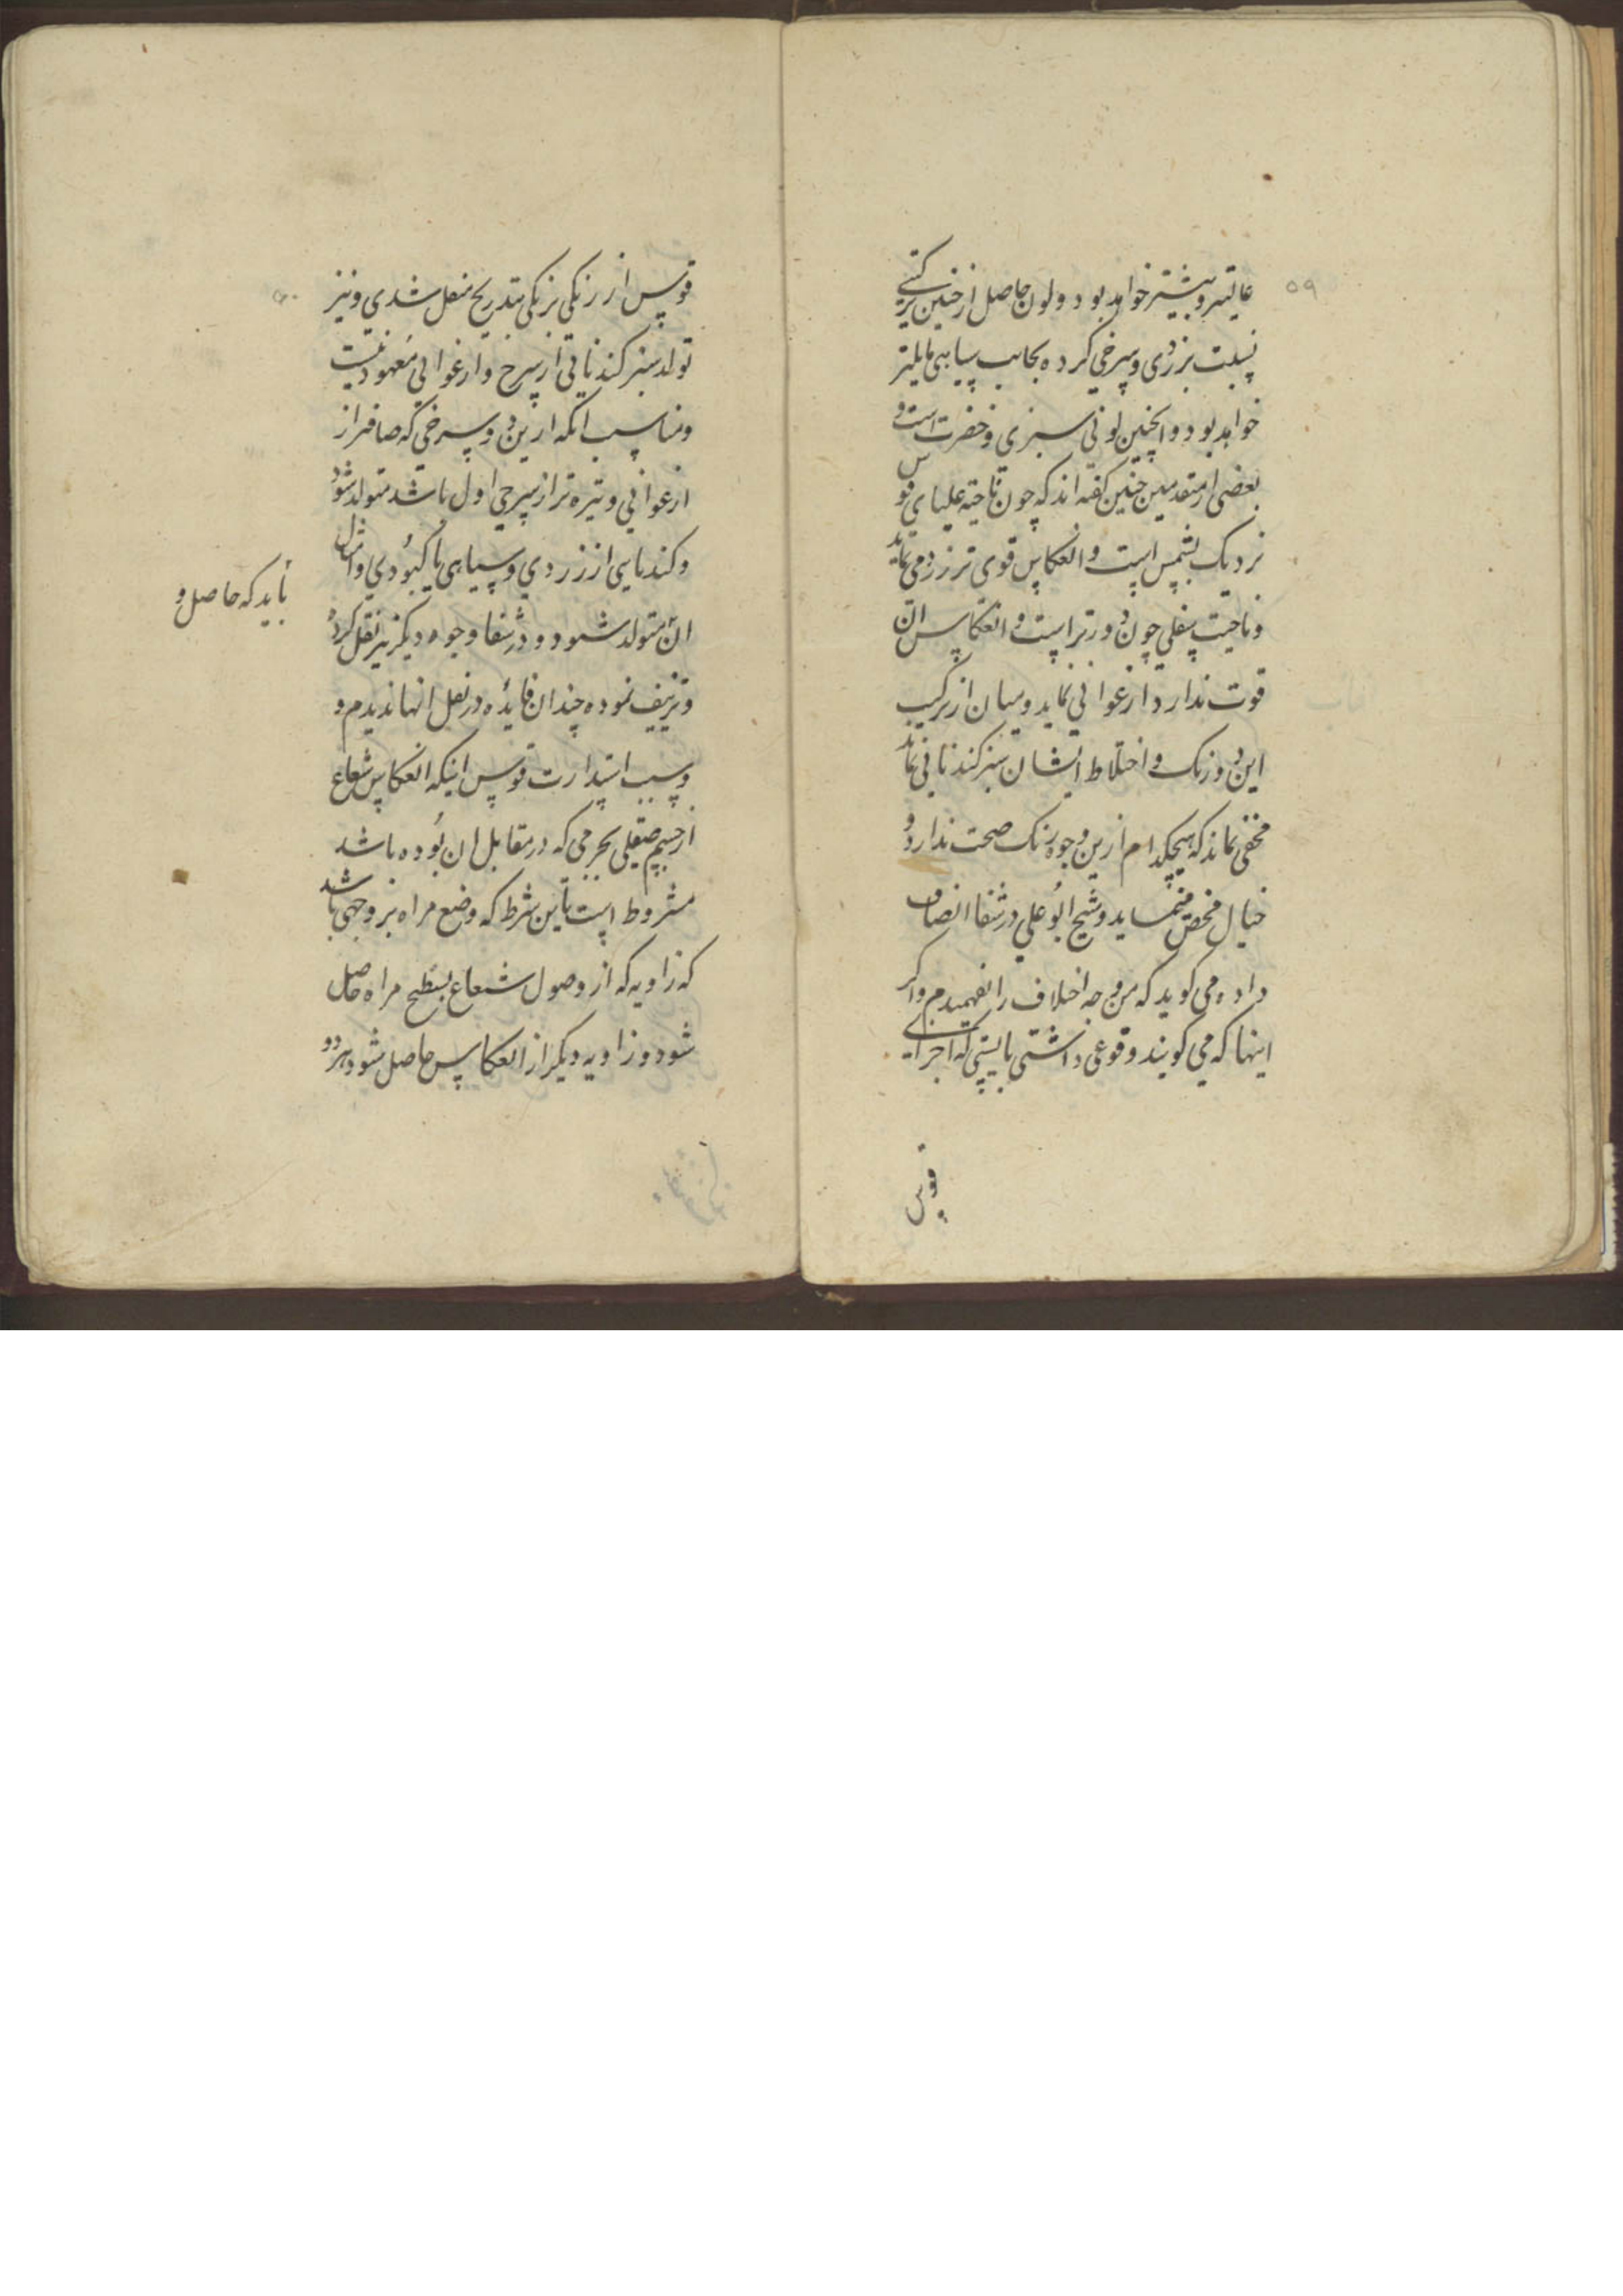 ۵۹
غالبتر و بیشتر خواهد بود و لون حاصل از چنین ترکیبی
نسبت بزردی و سرخی کرده بجانب سیاهی مایلتر
خواهد بود و اینچنین لونی سبزی و خضرت است و
بعضی از متقدمین چنین گفته اند که چون ناحیه علیای قوس
نزدیک بشمس است و انعکاس قوی تر زرد می نماید
و ناحیت سفلی چون دورتر است و انعکاس ان
قوت ندارد ارغوانی نماید و میان از ترکیب
این دو رنک و اختلاط ایشان سبز کندنائی نماید
مخفی نماند که هیچکدام ازین وجوه رنک صحت ندارد و
خیال محض مینماید و شیخ ابو علی در شفا انصاف
داده می کوید که من وجه اختلاف را نفهمیدم و اکر
اینها که می کویند وقوعی داشتی بایستی که اجزای
قوس
قوس از رنکی برنکی بتدریج منتقل شدی و نیز
تولد سبز کندنائی از سرخ و ارغوانی معهود نیست
و مناسب انکه ازین دو سرخی که صافتر از
ارغوانی و تیره تر از سرخی اول باشد متولد شود
و کندنایی از زردی و سیاهی یا کبودی و امثال
ان متولد شود و در شفا وجوه دیکر نیز نقل کرده
و تزییف نموده چندان فایده در نقل انها ندیدم و
و سبب استدارت قوس اینکه انعکاس شعاع
از جسم صقلی بجرمی که در مقابل ان بوده باشد
مشروط است باین شرط که وضع مراه بر وجهی باشد
که زاویه که از وصول شعاع بسطح مراه حاصل
شود و زاویه دیکر از انعکاس حاصل شود هر دو
باید که حاصل و